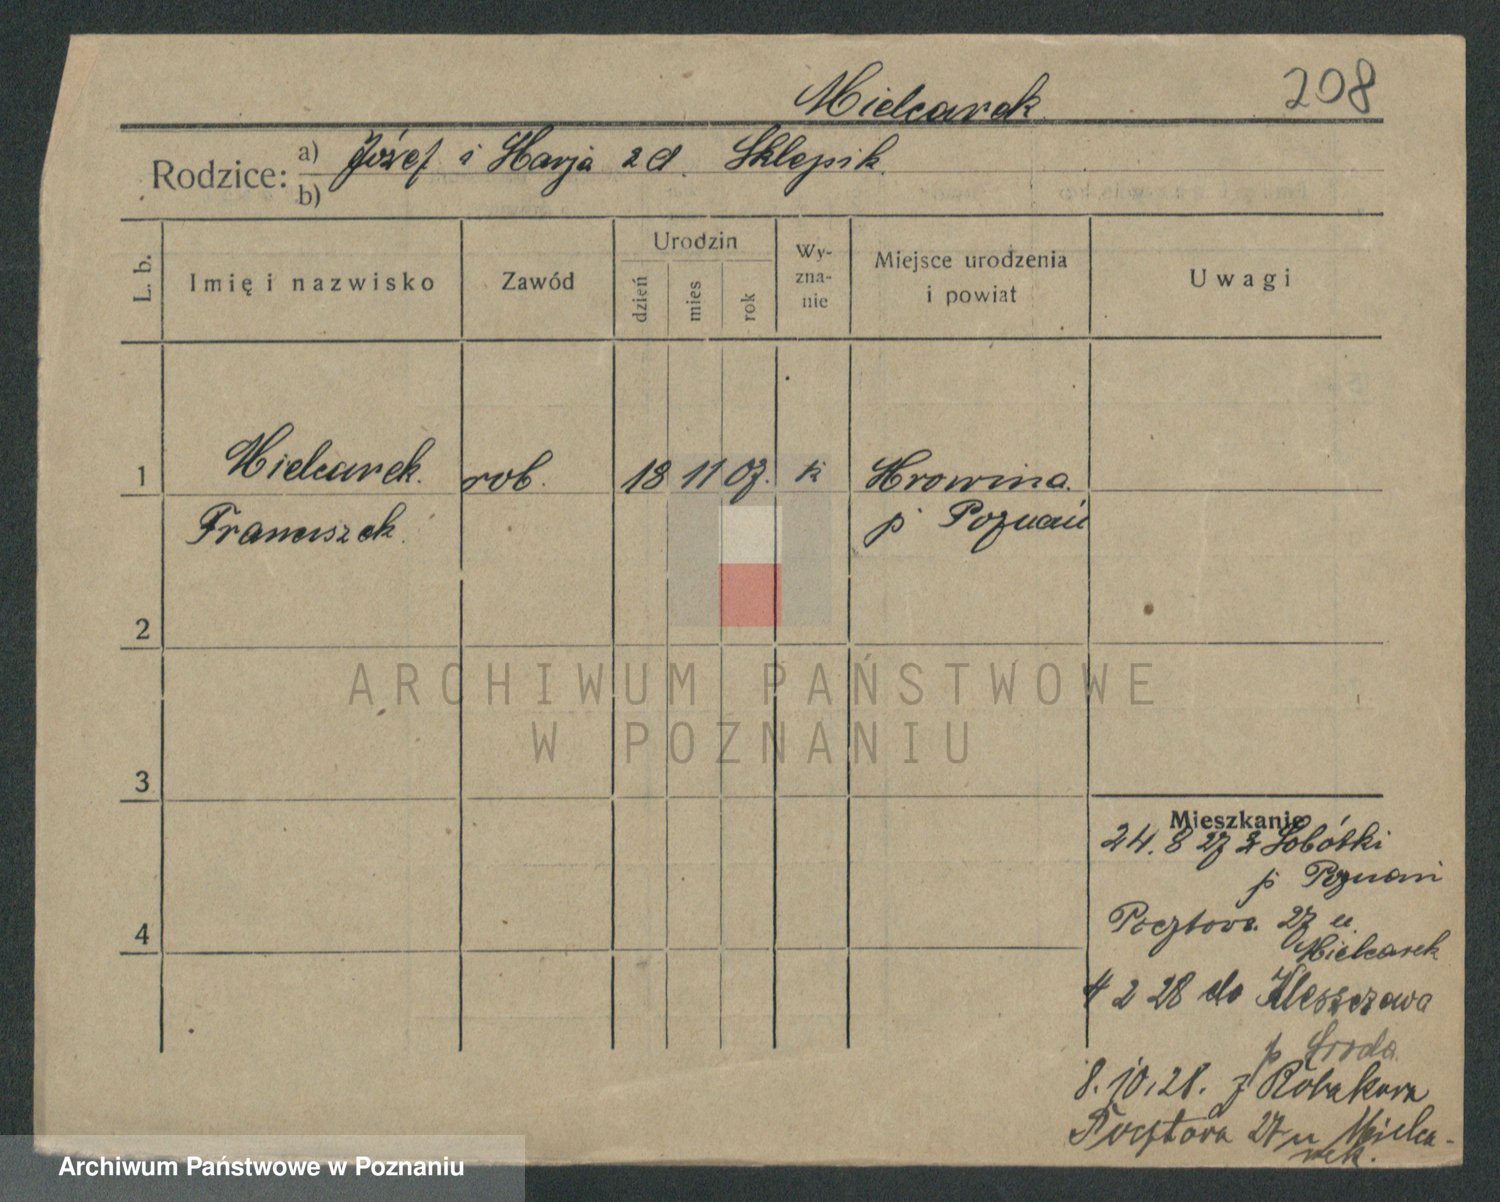 208
Mielcarek
Rodzice: a) Józef i Marja z d. Sklepik
b)
L. b.
Imię i nazwisko
Zawód
Urodzin
dzień
mies
rok
Wy-
zna-
nie
Miejsce urodzenia
i powiat
Uwagi
1 Mielcarek rob. 18 11 07. k Mrowina.
Franciszek. p Poznań
2
3
4
ARCHIWUM PAŃSTWOWE
W POZNANIU
Mieszkanie
24. 8 27 z Sobótki
p Poznań
Pocztowa. 27 u.
Mielcarek
4 2 28 do Kleszczewa
p Środa.
8. 10. 28. z Robakowa
Pocztowa 27 u Mielca-
rek.
Archiwum Państwowe w Poznaniu